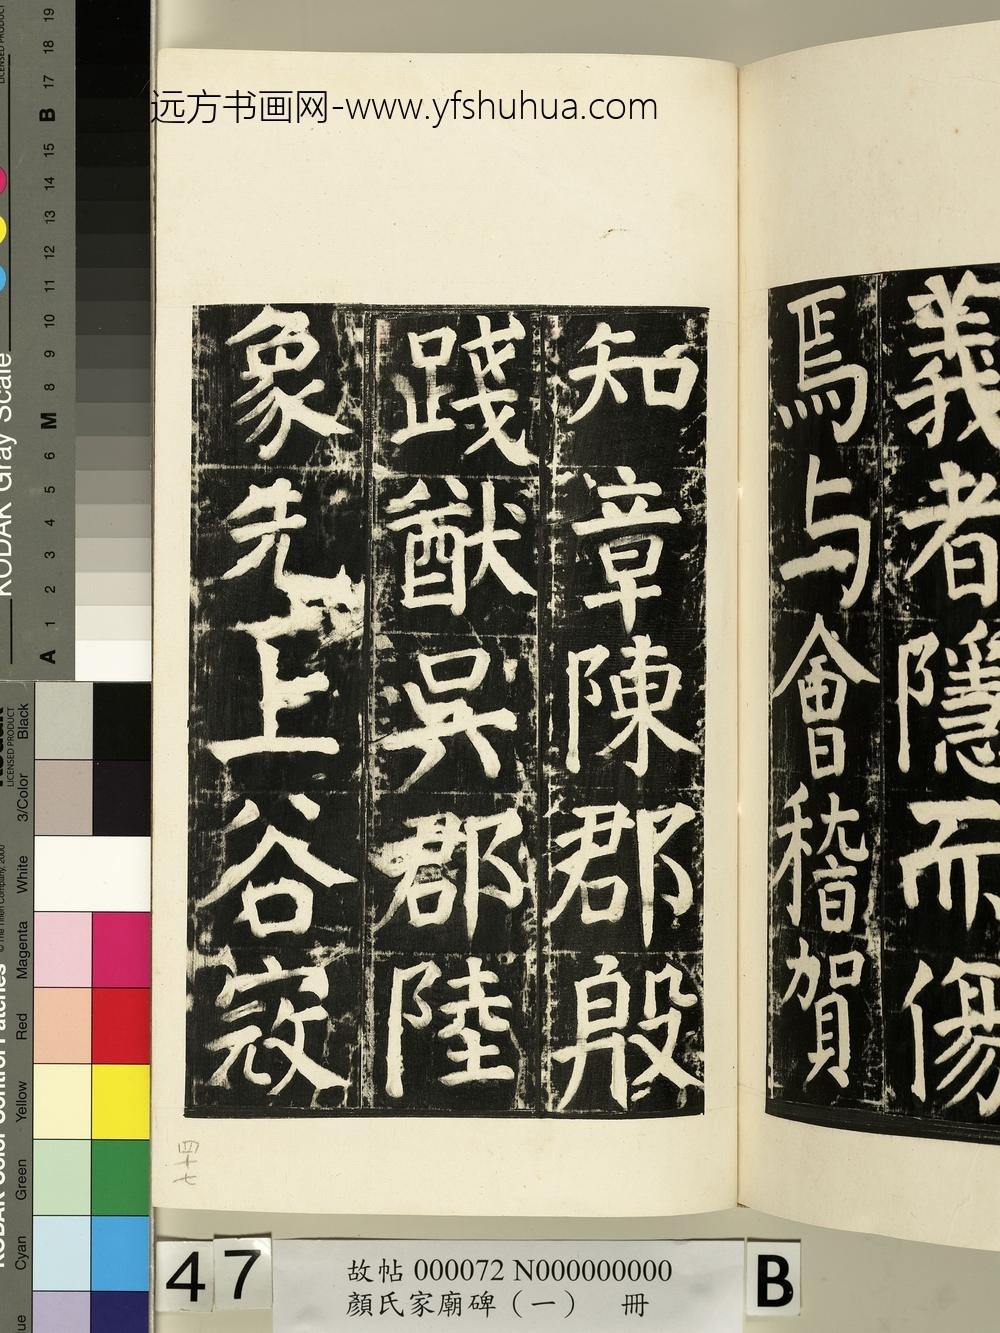 远方书画网-www.yfshuhua.com
義者隱而傷
焉与會稽賀
知章陳郡殷
踐猷吳郡陸
象先上谷寇
四十七
47
故帖 000072 N000000000
顏氏家廟碑（一） 冊
B
KODAK Gray Scale
A 1 2 3 4 5 6 M 8 9 10 11 12 13 14 15 B 17 18 19
LICENSED PRODUCT
Black
3/Color
White
Magenta
Red
Yellow
Green
Cyan